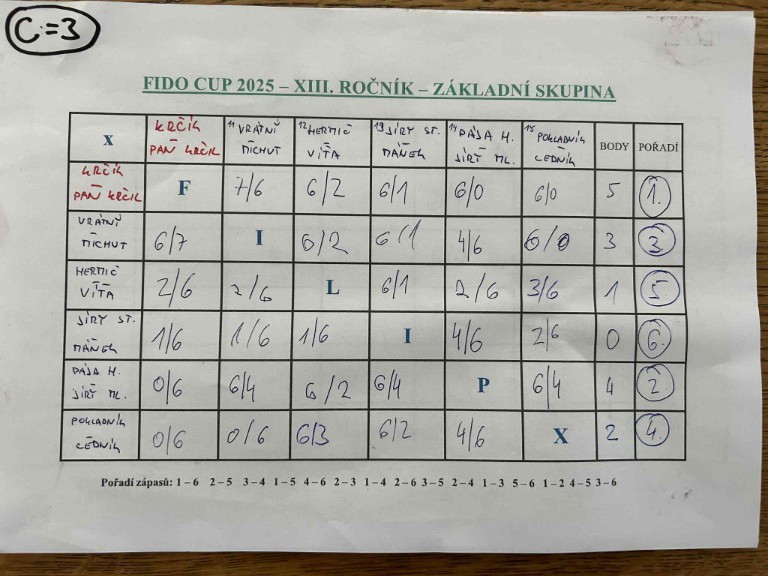 C=3
FIDO CUP 2025 – XIII. ROČNÍK – ZÁKLADNÍ SKUPINA
x KRČÍK PAŇ KRČÍK 11 VRÁTNÝ MICHUT 12 HERMIČ VÍŤA 13 JÍRY ST. MÁŇEK 14 PÁJA H. JÍRŤ ML. 15 POKLADNÍK LEDNÍK BODY POŘADÍ
KRČÍK PAŇ KRČÍK F 7/6 6/2 6/1 6/0 6/0 5 1.
VRÁTNÝ MICHUT 6/7 I 6/2 6/1 4/6 6/0 3 3
HERMIČ VÍŤA 2/6 2/6 L 6/1 2/6 3/6 1 5.
JÍRY ST. MÁŇEK 1/6 1/6 1/6 I 4/6 2/6 0 6.
PÁJA H. JÍRŤ ML. 0/6 6/4 6/2 6/4 P 6/4 4 2.
POKLADNÍK LEDNÍK 0/6 0/6 6/3 6/2 4/6 X 2 4.
Pořadí zápasů: 1 – 6 2 – 5 3 – 4 1 – 5 4 – 6 2 – 3 1 – 4 2 – 6 3 – 5 2 – 4 1 – 3 5 – 6 1 – 2 4 – 5 3 – 6